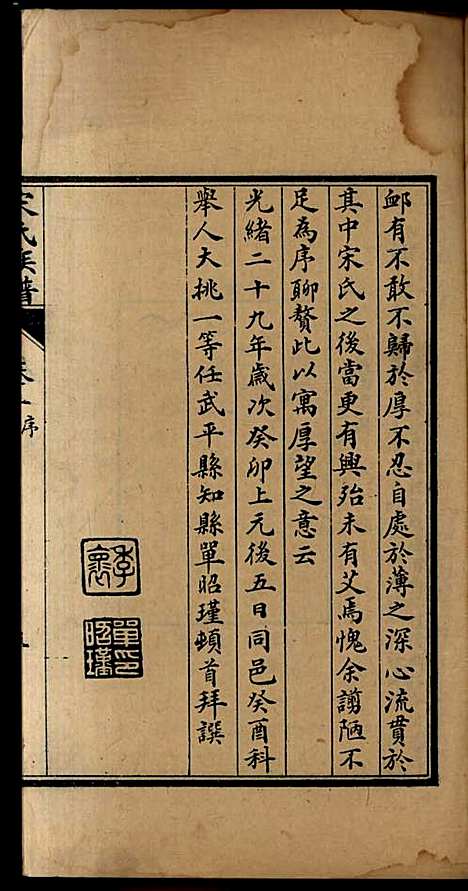 䘏有不敢不歸於厚不忍自處於薄之深心流貫於
其中宋氏之後當更有興殆未有艾焉愧余謭陋不
足為序聊贅此以寓厚望之意云
光緒二十九年歲次癸卯上元後五日同邑癸酉科
舉人大挑一等任武平縣知縣單昭瑾頓首拜譔
季襄
單昭瑾印
宋氏族譜
卷一序